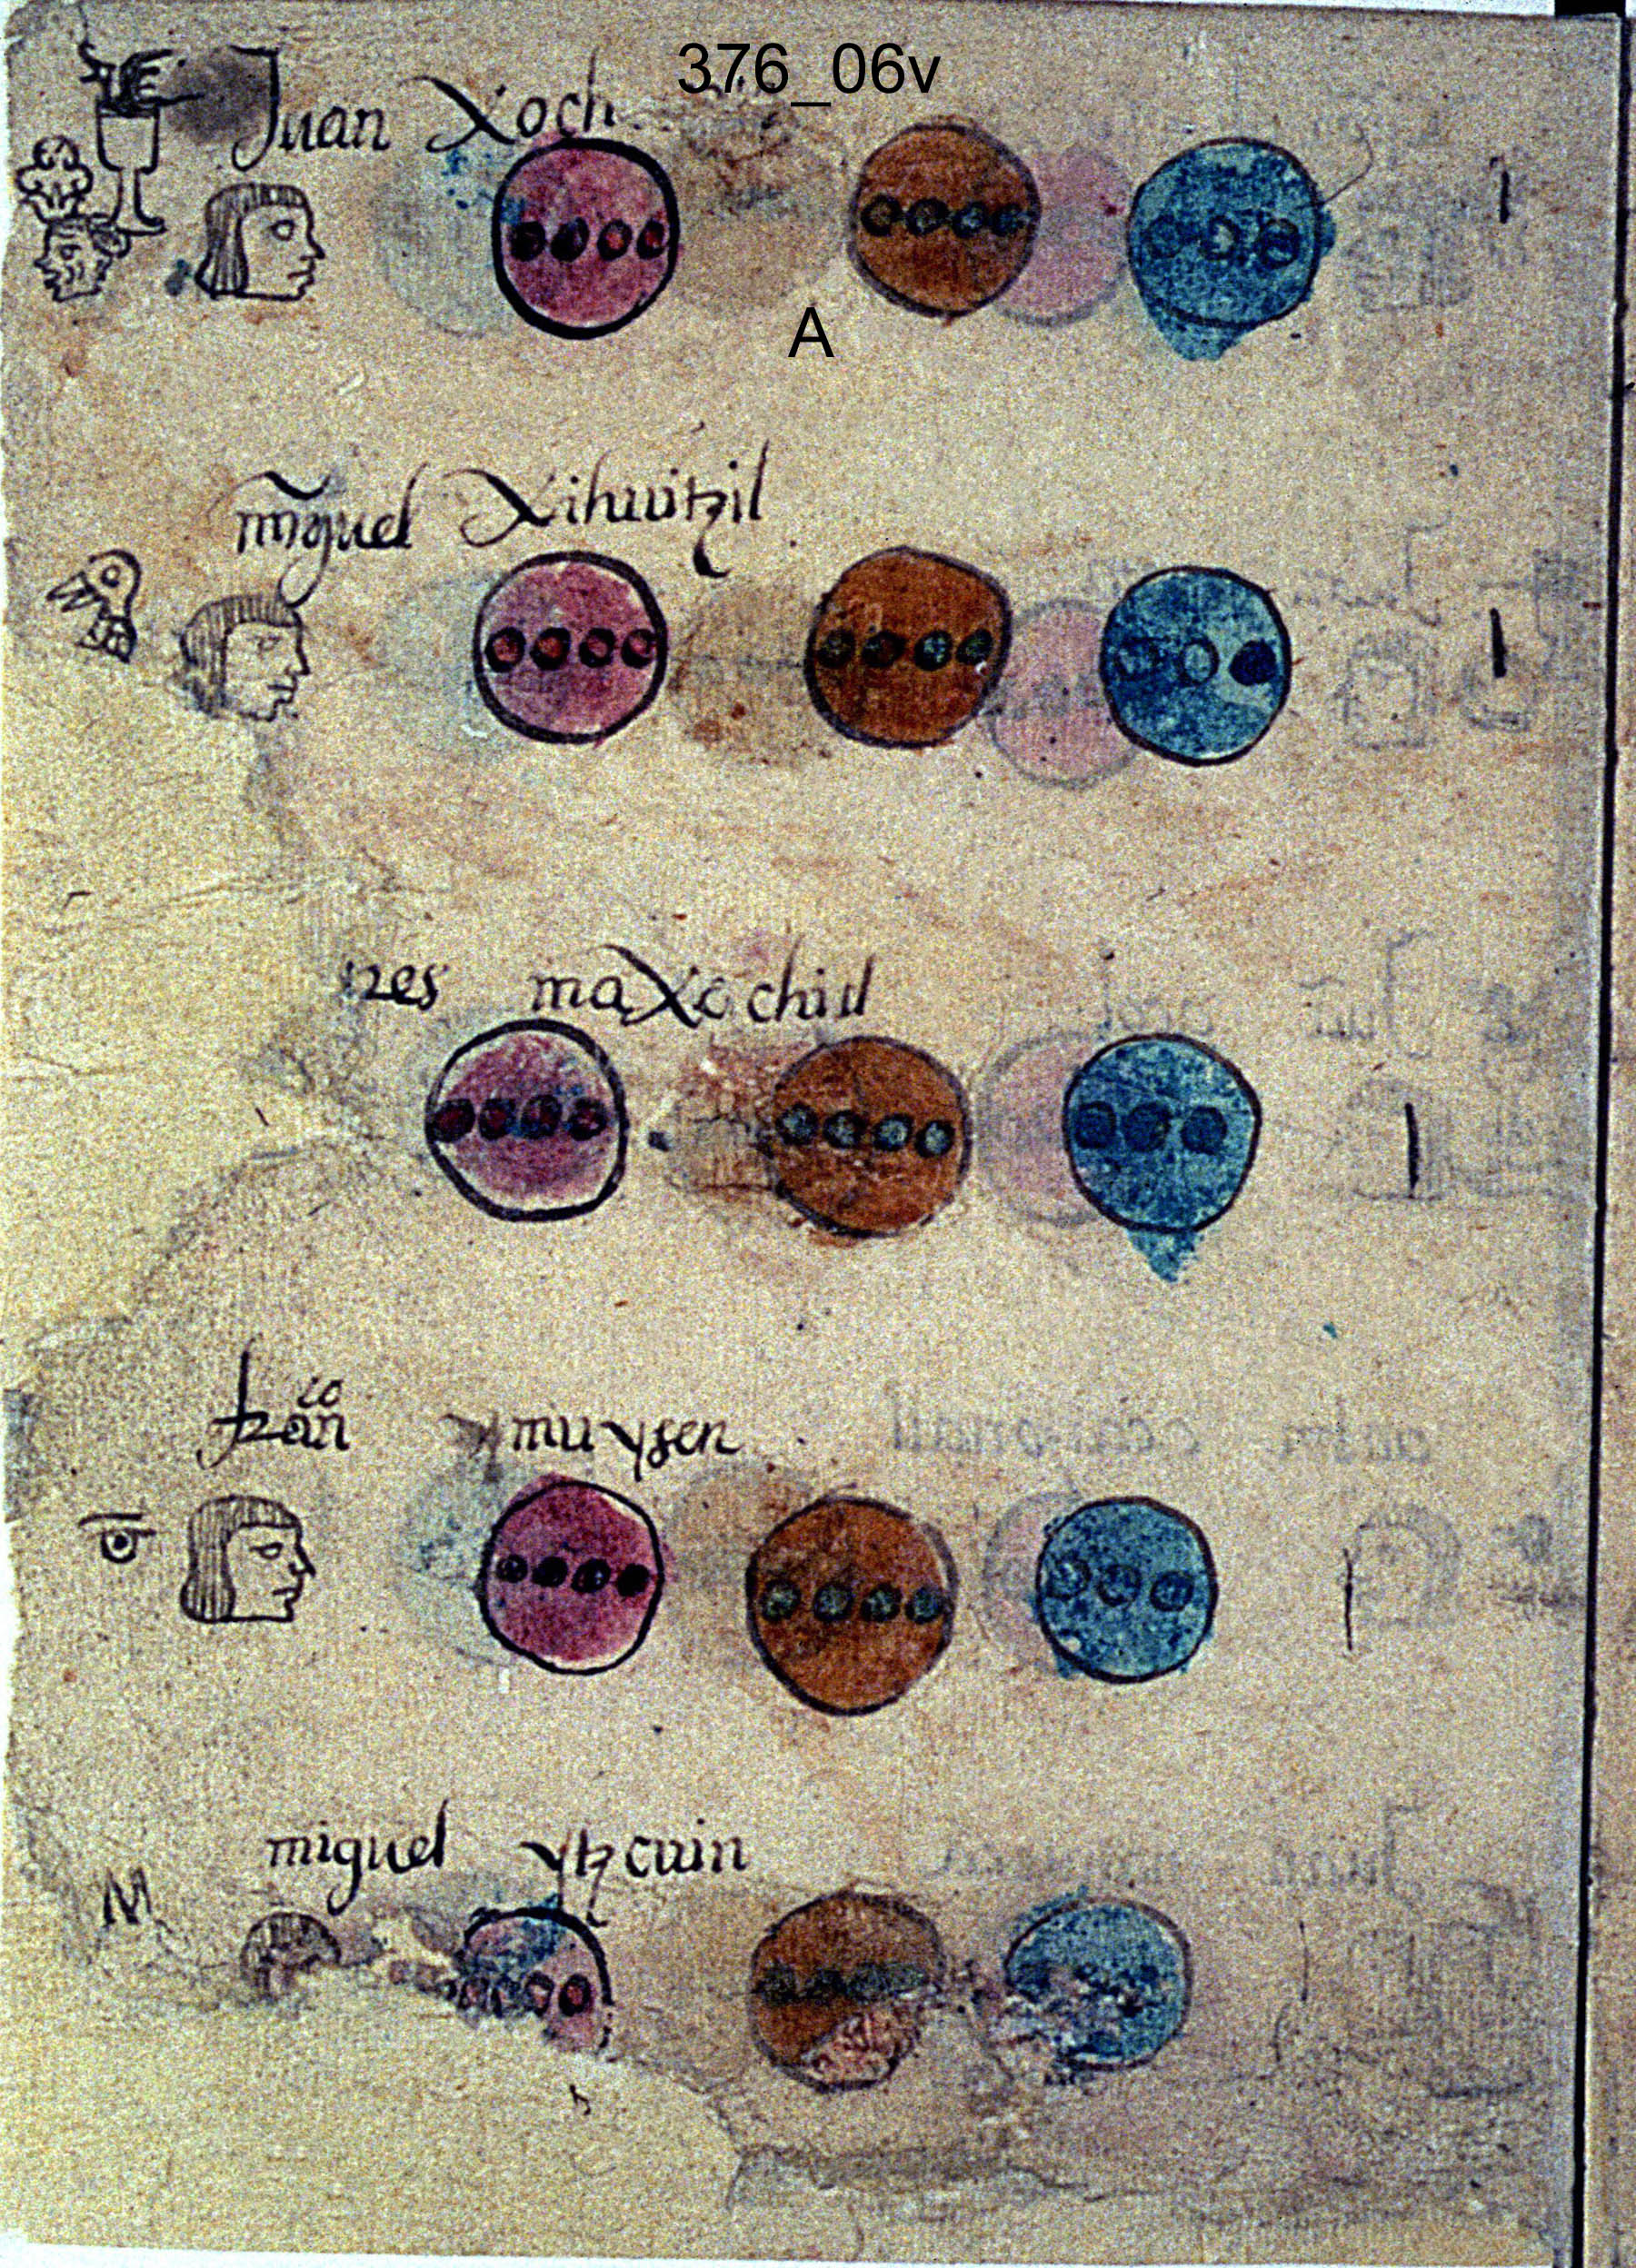 376_06v
Juan Xoch
A
miguel Xihuitzil
res maXochitl
franco ymuysen
miguel ytzcuin